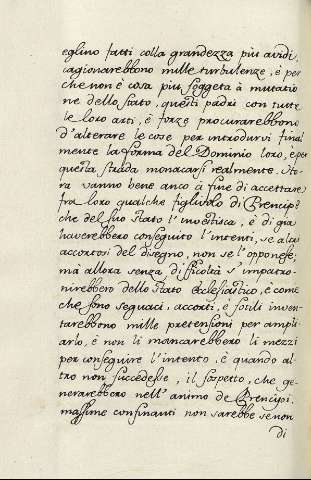 eglino fatti colla grandezza più avidi,
cagionarebbono mille turbulenze, è per
che non è cosa più soggeta à mutatio
ne dello stato, questi padri con tutte
le loro arti, è forze procurarebbono
d'alterare le cose per introdurvi final
mente la forma del Dominio loro, è per
questa strada monacarsi realmente. Ho
ra vanno bene anco à fine di accettare
frà loro qualche figlivolo di Prencipe
che del suo stato l'investisca, è di già
haverebbero conseguito l'intenti, se alcu
accortosi del disegno, non se l'opponesse;
mà allora senza difficoltà s'impatro-
nirebbero dello stato Ecclesiastico, è come
che sono seguaci, accorti, è sotili inven
tarebbono mille pretensioni per ampli
arlo, è non li mancarebbero li mezzi
per conseguire l'intento, è quando al-
tro non succedesse, il sospetto, che ge-
nerarebbero nell'animo de Prencipi
massime confinanti non sarebbe senon
di